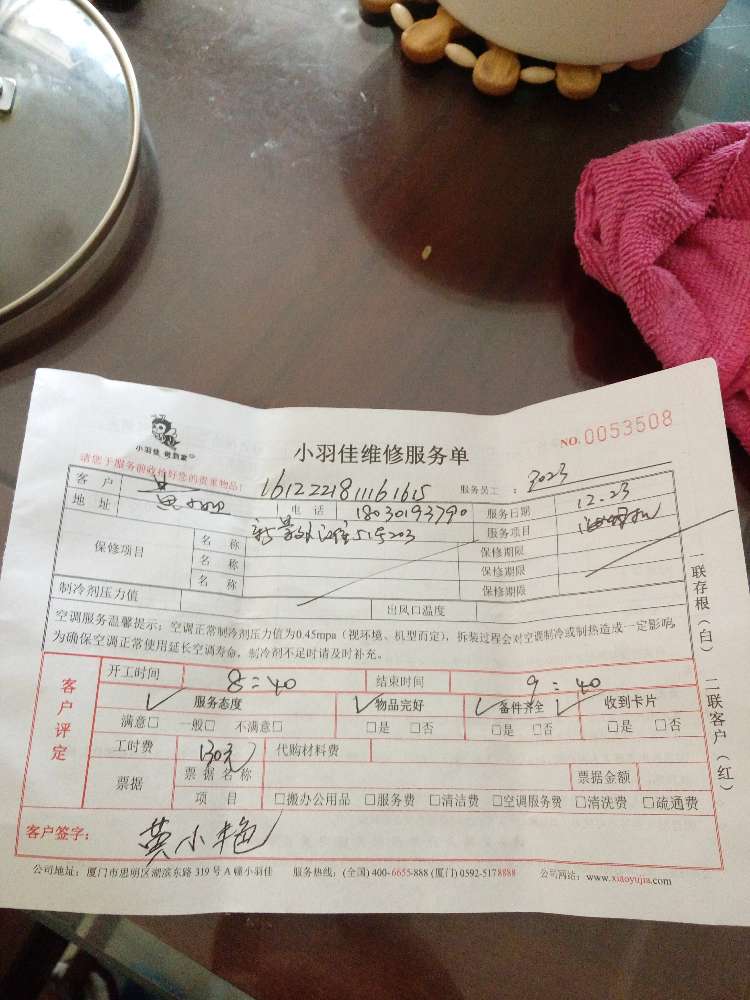 小羽佳 做到家
小羽佳维修服务单
NO.0053508
请您于服务前收拾好您的贵重物品!
1612221811161615
服务员工: 3023
客户 黄小艳 电话 18030193790 服务日期 12.23
地址 51号203 服务项目
保修项目 名称 保修期限
名称 保修期限
名称 保修期限
制冷剂压力值 出风口温度
空调服务温馨提示:空调正常制冷剂压力值为0.45mpa(视环境、机型而定),拆装过程会对空调制冷或制热造成一定影响,
为确保空调正常使用延长空调寿命,制冷剂不足时请及时补充。
客户评定
开工时间 8:40 结束时间 9:40
服务态度 物品完好 备件齐全 收到卡片
满意□ 一般□ 不满意□ □是 □否 □是 □否 □是 □否
工时费 130元 代购材料费
票据 票据名称 票据金额
项目 □搬办公用品 □服务费 □清洁费 □空调服务费 □清洗费 □疏通费
客户签字: 黄小艳
一联存根(白) 二联客户(红)
公司地址:厦门市思明区湖滨东路319号A幢小羽佳 服务热线:(全国)400-6655-888(厦门)0592-5178888 公司网站:www.xiaoyujia.com